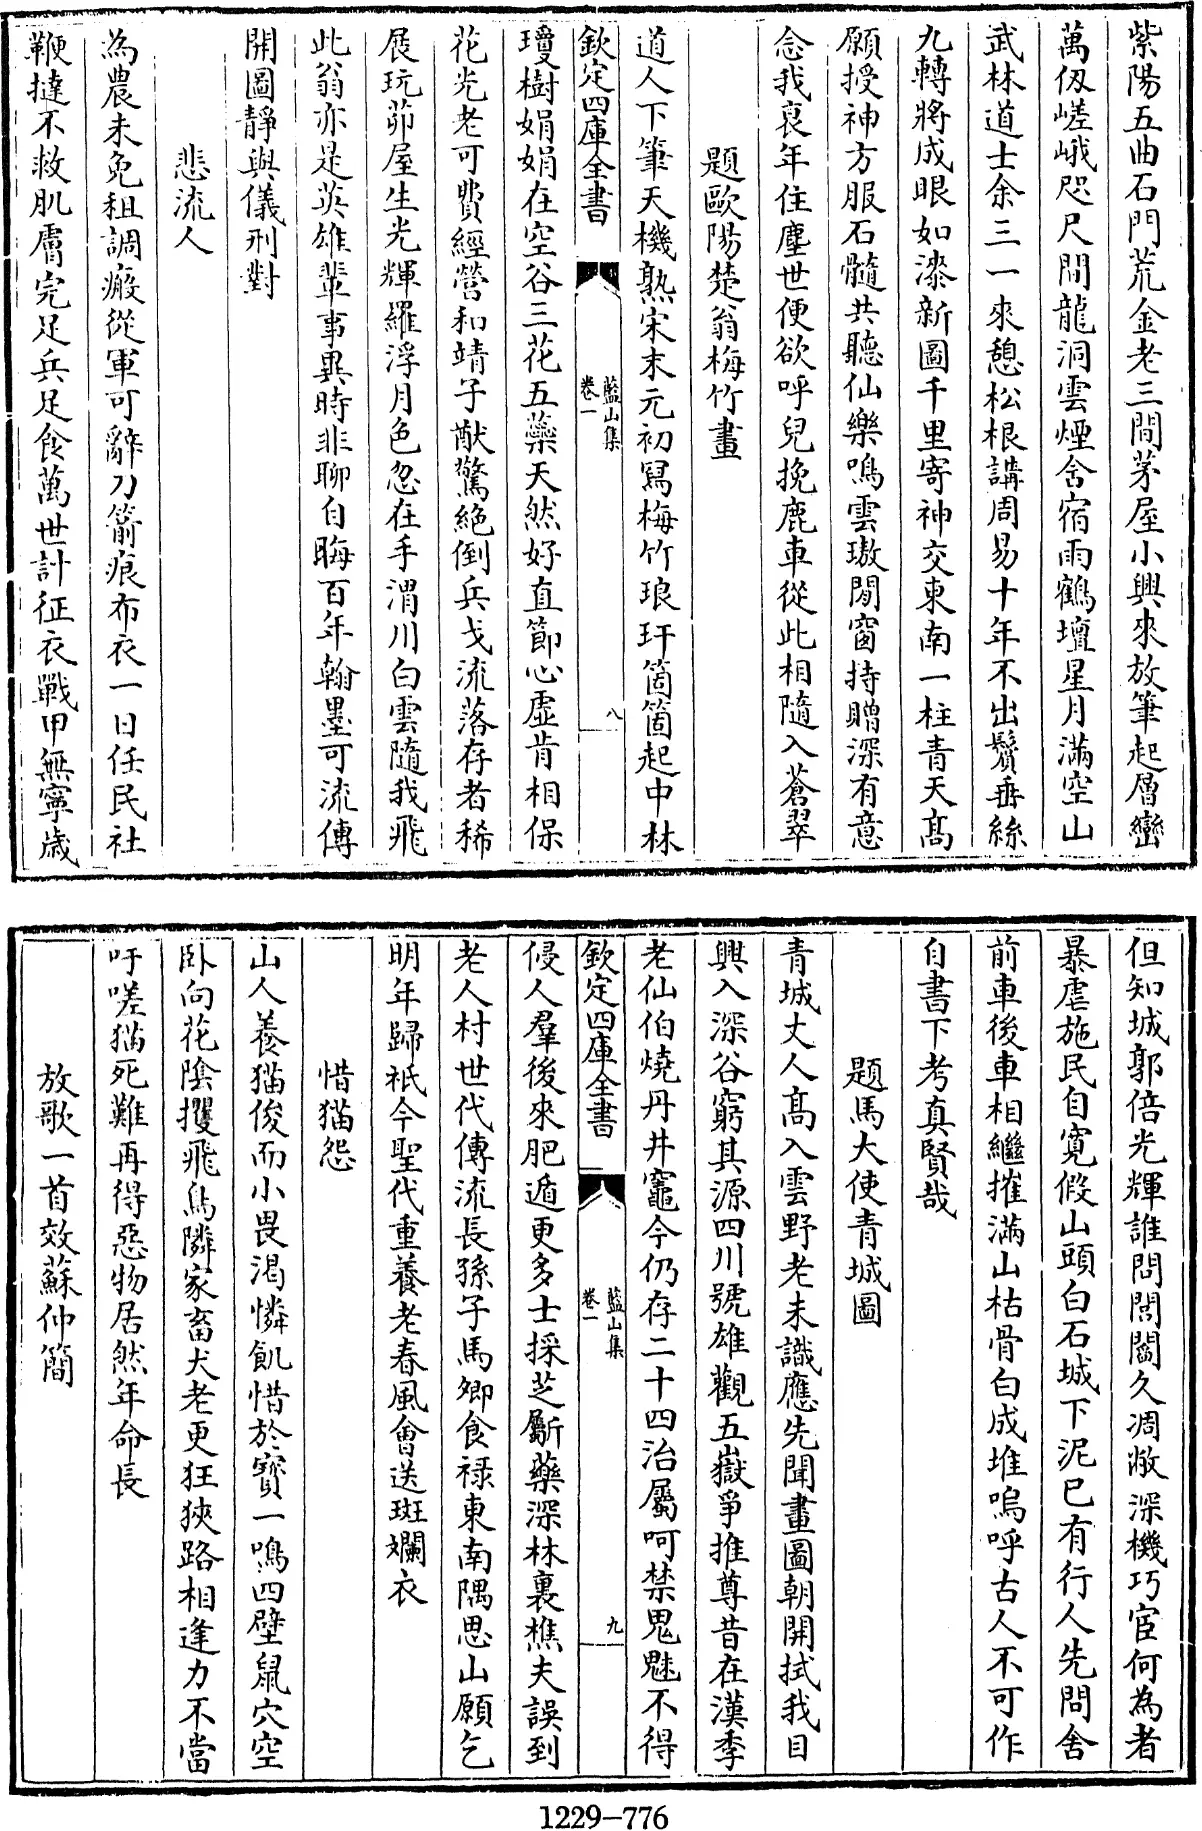 紫陽五曲石門荒金老三間茅屋小興來放筆起層巒
萬仞嵯峨咫尺間龍洞雲煙含宿雨鶴壇星月滿空山
武林道士余三一來憩松根講周易十年不出鬢垂絲
九轉將成眼如漆新圖千里寄神交東南一柱青天高
願授神方服石髓共聽仙樂鳴雲璈閒窗持贈深有意
念我衰年住塵世便欲呼兒挽鹿車從此相隨入蒼翠
題歐陽楚翁梅竹畫
道人下筆天機熟宋末元初寫梅竹琅玕箇箇起中林
欽定四庫全書
藍山集
卷一
八
瓊樹娟娟在空谷三花五蘂天然好直節心虛肯相保
花光老可費經營和靖子猷驚絕倒兵戈流落存者稀
展玩茆屋生光輝羅浮月色忽在手渭川白雲隨我飛
此翁亦是英雄輩事異時非聊自晦百年翰墨可流傳
開圖靜與儀刑對
悲流人
為農未免租調瘢從軍可辭刀箭痕布衣一日任民社
鞭撻不救肌膚完足兵足食萬世計征衣戰甲無寧歲
但知城郭倍光輝誰問閭閻久凋敝深機巧宦何為者
暴虐施民自寬假山頭白石城下泥已有行人先問舍
前車後車相繼摧滿山枯骨白成堆嗚呼古人不可作
自書下考真賢哉
題馬大使青城圖
青城丈人高入雲野老未識應先聞畫圖朝開拭我目
興入深谷窮其源四川號雄觀五嶽爭推尊昔在漢季
老仙伯燒丹井竈今仍存二十四治屬呵禁鬼魅不得
欽定四庫全書
藍山集
卷一
九
侵人羣後來肥遁更多士採芝斸藥深林裏樵夫誤到
老人村世代傳流長孫子馬卿食祿東南隅思山願乞
明年歸祇今聖代重養老春風會送斑斕衣
惜猫怨
山人養猫俊而小畏渴憐飢惜於寶一鳴四壁鼠穴空
卧向花陰攫飛鳥隣家畜犬老更狂狹路相逢力不當
吁嗟猫死難再得惡物居然年命長
放歌一首效蘇仲簡
1229-776